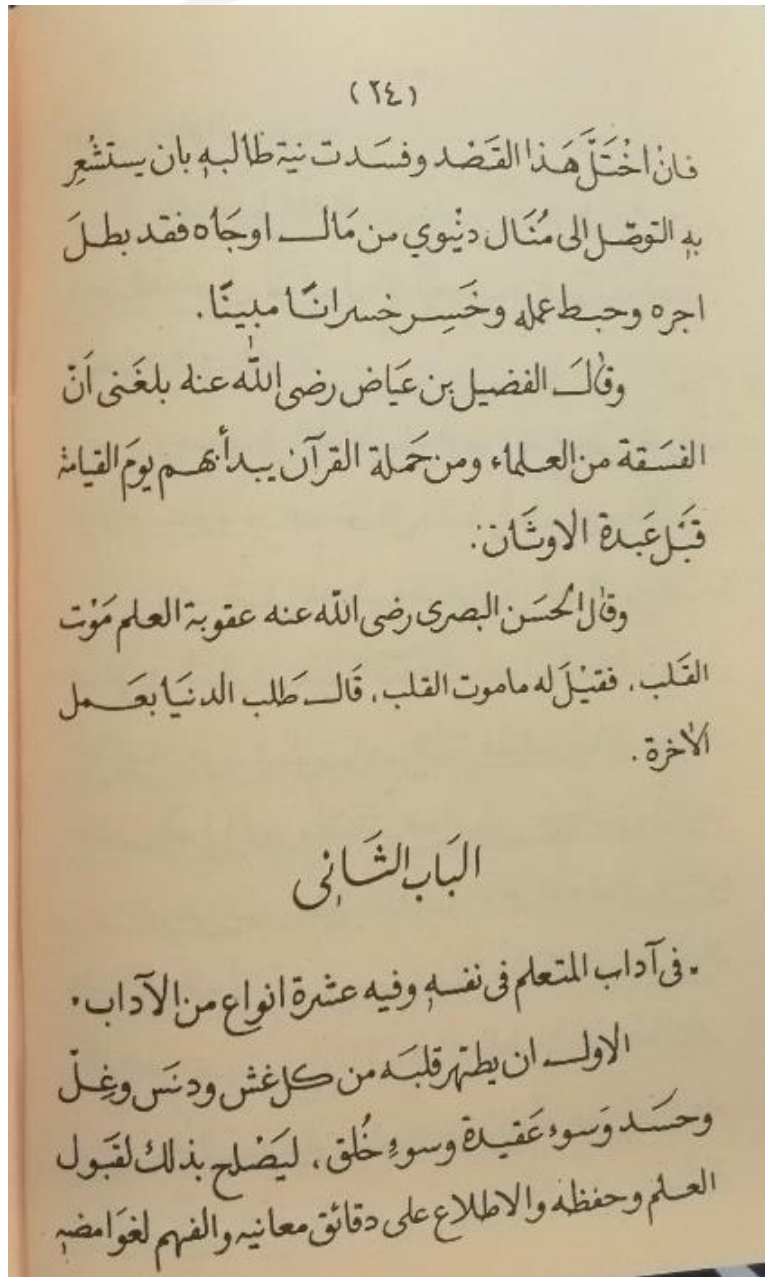 (٢٤)
فانْ اخْتَلَّ هَذا القَصْد وفسَدت نية طالبهِ بان يستشْعِر
بهِ التوصّل الى مُنَال دنْيوي من مَال اوجَاه فقد بطلَ
اجره وحبط عمله وخَسِر خسرانًا مبينًا.
وقالَ الفضيل بن عَيَاض رضى الله عنه بلغَنى اَنّ
الفسَقة من العلماء ومن حَملة القرآن يبدأ بهم يومَ القيامة
قَبْل عَبدة الاوثَان:
وقال الحسَن البصرى رضى الله عنه عقوبة العلم مَوْت
القَلب. فقيْلَ له ماموت القلب. قَال طَلب الدنيَا بعَمل
الاٰخرة.
البَاب الثَانِى
. فى آداب المتعلم فى نفسهِ وفيه عشرة انواع من الآداب.
الاول ان يطهّر قلبَه من كل غش ودنَس وغِلّ
وحسَد وَسوء عَقيدة وسوءِ خُلق. ليَصْلح بذلك لقَبول
العلم وحفظه والاطلاع على دقائق معانيه والفهم لغوَامضهِ